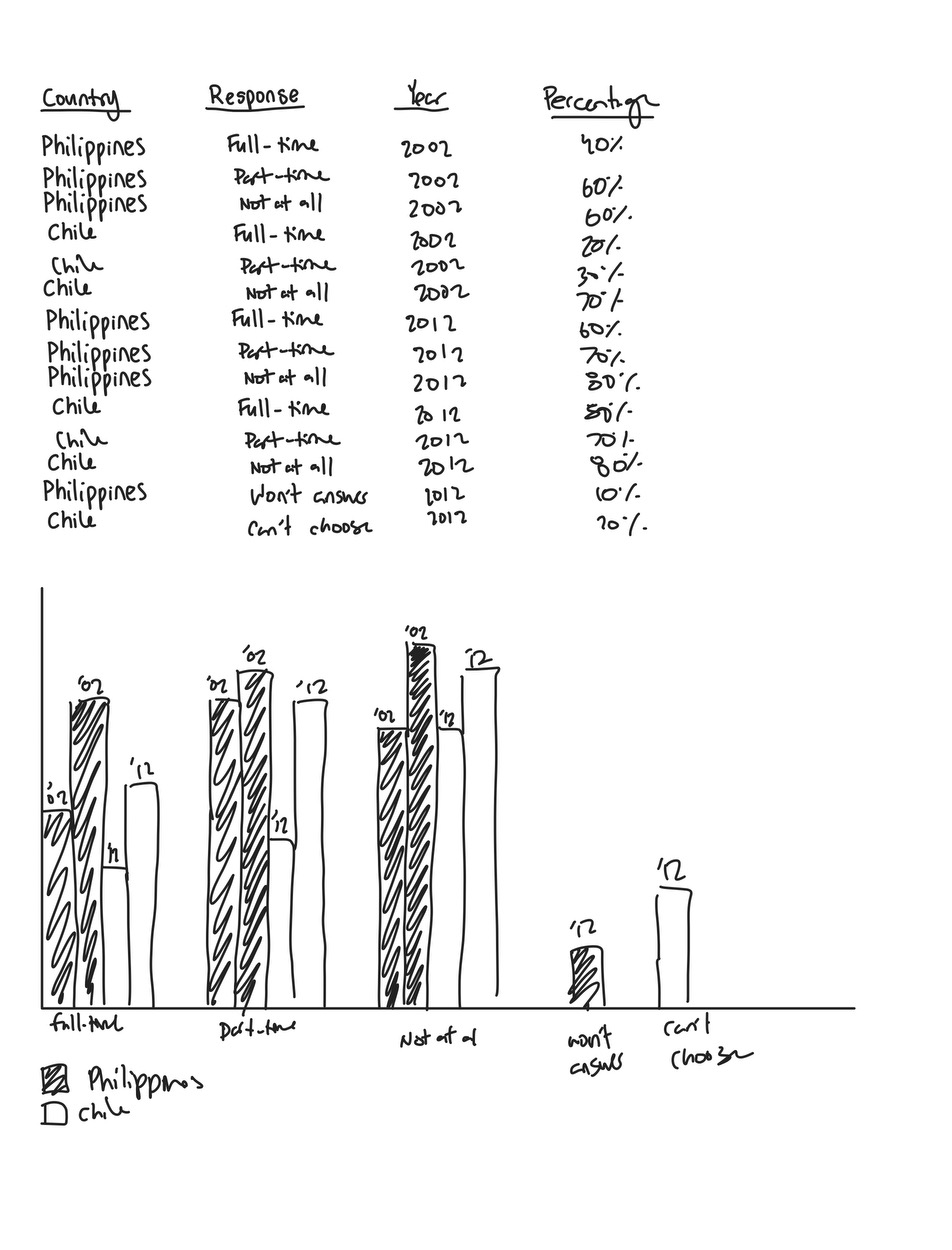 Country Response Year Percentage
Philippines Full-time 2002 40%
Philippines Part-time 2002 60%
Philippines Not at all 2002 60%
Chile Full-time 2002 20%
Chile Part-time 2002 30%
Chile Not at all 2002 70%
Philippines Full-time 2012 60%
Philippines Part-time 2012 70%
Philippines Not at all 2012 80%
Chile Full-time 2012 50%
Chile Part-time 2012 70%
Chile Not at all 2012 80%
Philippines Won't answer 2012 10%
Chile Can't choose 2012 20%
'02
'02 '02 '02 '12
'02 '12 '02 '12
'12
'02 '12
'12
'12
'12
Full-time Part-time Not at al won't can't
answer choose
Philippines
Chile